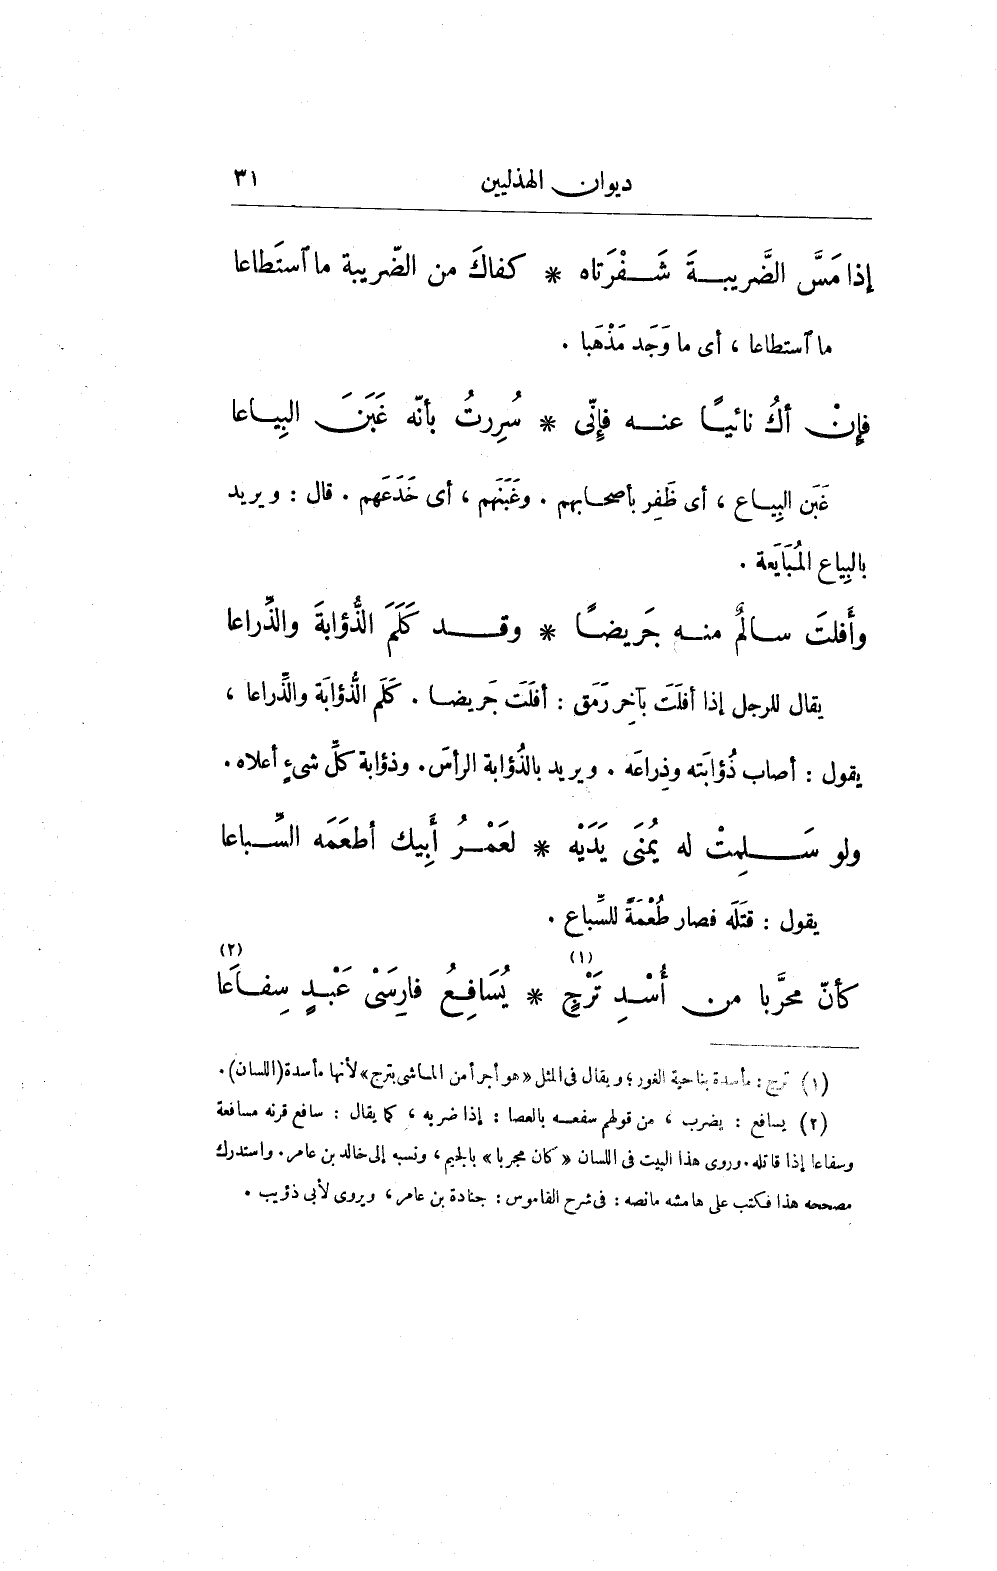 ديوان الهذليين ٣١
إذا مَسَّ الضَّريبةَ شَفْرَتاه * كفاكَ من الضّريبة ما ٱستَطاعا
ما ٱستطاعا ، أى ما وَجَد مَذْهَبا .
فإنْ أكُ نائيًا عنه فإنّى * سُرِرتُ بأنّه غَبَنَ البِياعا
غَبَن البِياع ، أى ظَفِر بأصحابهم . وغَبَنَهم ، أى خَدَعَهم . قال : ويريد
بالبِياع المُبَايَعة .
وأَفلتَ سالمٌ منه جَريضًا * وقد كَلَمَ الذُّؤابةَ والذِّراعا
يقال للرجل إذا أفلَتَ بآخِر رَمَق : أفلَتَ جَريضا . كَلَم الذُّؤابَة والذِّراعا ،
يقول : أصاب ذُؤابَته وذِراعَه . ويريد بالذُؤابة الرأسَ . وذؤابة كلِّ شىءٍ أعلاه .
ولو سَلِمتْ له يُمنَى يَدَيْه * لعَمْرُ أَبِيك أطعَمَه السِّباعا
يقول : قتَلَه فصار طُعْمَةً للسِّباع .
(١) (٢)
كأنّ محرَّبا من أُسْدِ تَرْجٍ * يُسَافِعُ فارِسَىْ عَبْدٍ سِفاعَا
(١) ترج : مأسدة بناحية الغور ؛ ويقال فى المثل «هو أجرأ من الماشى بترج» لأنها مأسدة (اللسان) .
(٢) يسافع : يضرب ، من قولهم سفعه بالعصا : إذا ضربه ، كما يقال : سافع قرنه مسافعة
وسفاعا إذا قاتله . وروى هذا البيت فى اللسان «كان مجربا» بالجيم ، ونسبه إلى خالد بن عامر . واستدرك
مصححه هذا فكتب على هامشه مانصه : فى شرح القاموس : جنادة بن عامر ، ويروى لأبى ذؤيب .